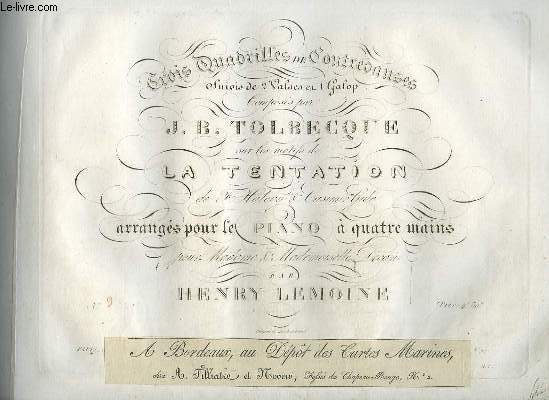 www.le-livre.com
Trois Quadrilles de Contredanses
Suivis de 2 Valses et 1 Galop
Composés par
J. B. TOLBECQUE
sur les motifs de
LA TENTATION
de F. Halevy & Casimir Gide
arrangés pour le PIANO à quatre mains
pour Madame & Mademoiselle
PAR
HENRY LEMOINE
A Bordeaux, au Dépôt des Cartes Marines,
chez A. Filliatre et Neveu, Fossés du Chapeau-Rouge, N.º 2.